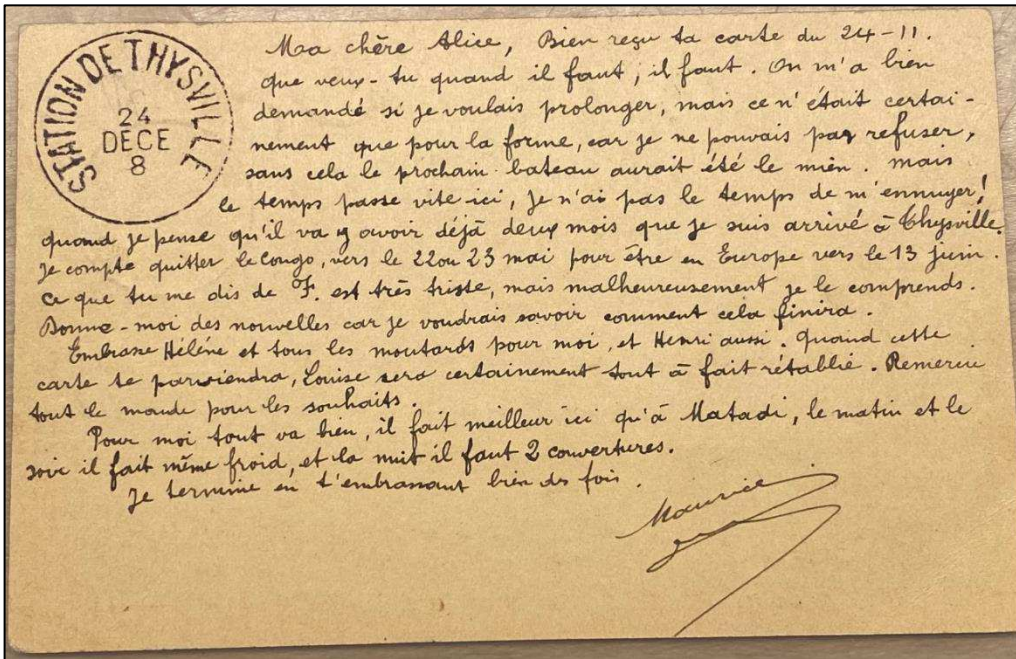 STATION DE THYSVILLE
24
DECE
8
Ma chère Alice, Bien reçu ta carte du 24-11.
que veux-tu quand il faut, il faut. On m'a bien
demandé si je voulais prolonger, mais ce n'était certai-
nement que pour la forme, car je ne pouvais pas refuser,
sans cela le prochain bateau aurait été le mien. mais
le temps passe vite ici, je n'ai pas le temps de m'ennuyer!
quand je pense qu'il va y avoir déjà deux mois que je suis arrivé à Thysville.
Je compte quitter le Congo, vers le 22 ou 23 mai pour être en Europe vers le 13 juin.
Ce que tu me dis de F. est très triste, mais malheureusement je le comprends.
Donne-moi des nouvelles car je voudrais savoir comment cela finira.
Embrasse Hélène et tous les moutards pour moi, et Henri aussi. Quand cette
carte te parviendra, Louise sera certainement tout à fait rétablie. Remercie
tout le monde pour les souhaits.
Pour moi tout va bien, il fait meilleur ici qu'à Matadi, le matin et le
soir il fait même froid, et la nuit il faut 2 couvertures.
Je termine en t'embrassant bien des fois.
Maurice